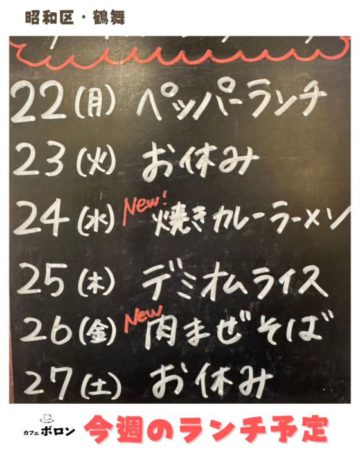 昭和区・鶴舞
22(月) ペッパーランチ
23(火) お休み
24(水) New! 焼きカレーラーメン
25(木) デミオムライス
26(金) New 肉まぜそば
27(土) お休み
カフェ ボロン 今週のランチ予定